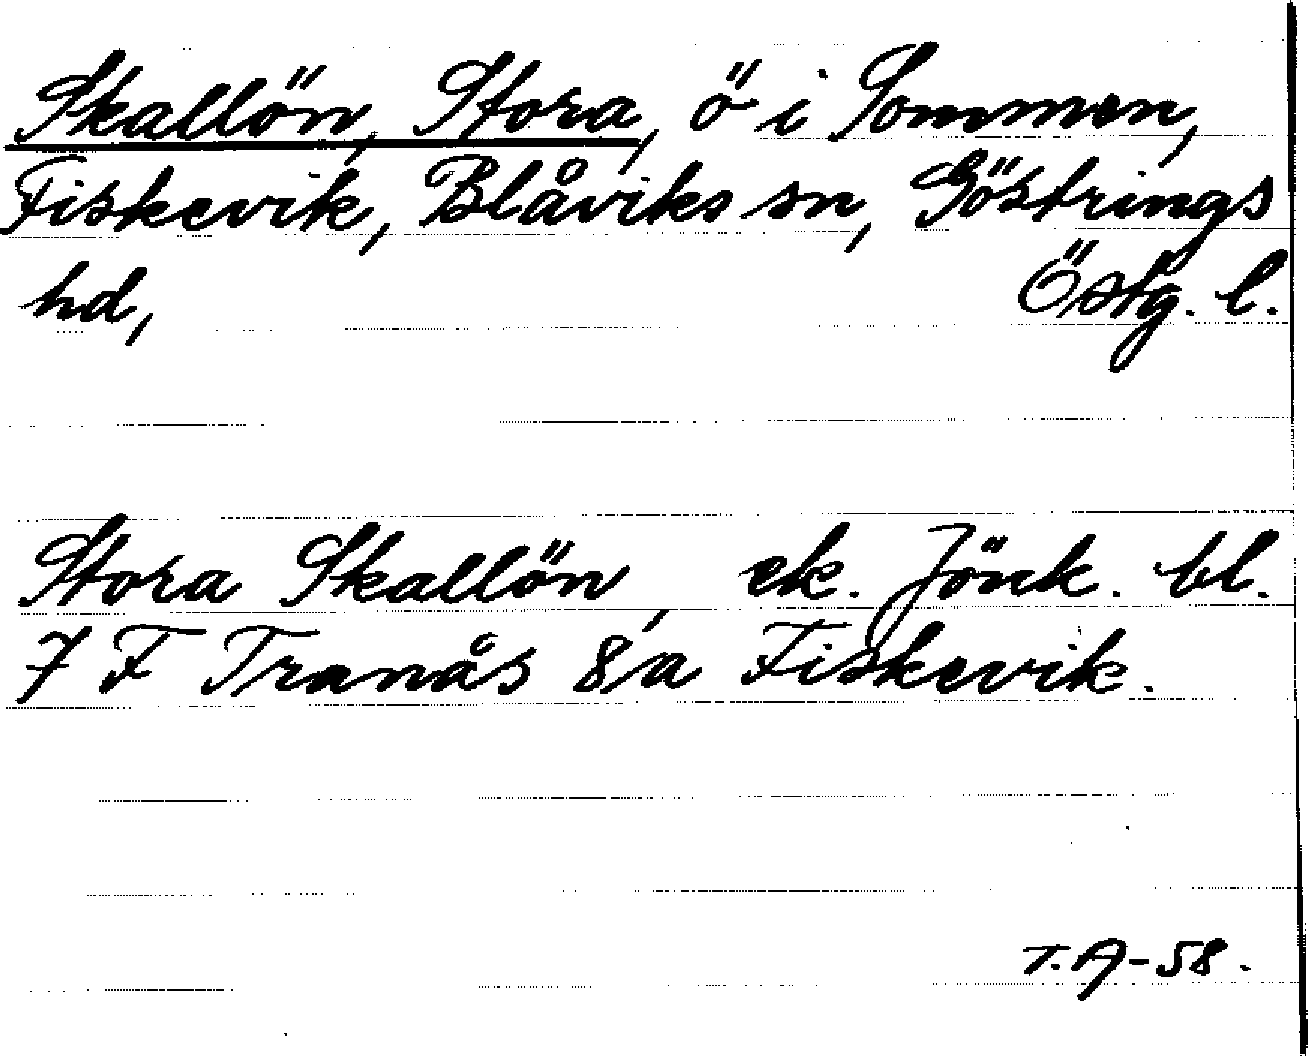 Skallön, Stora, ö i Sommen,
Fiskevik, Blåviks sn, Göstrings
hd, Östg. l.
Stora Skallön, ek. Jönk. bl.
7 F Tranås 8/a Fiskevik.
T.A-58.